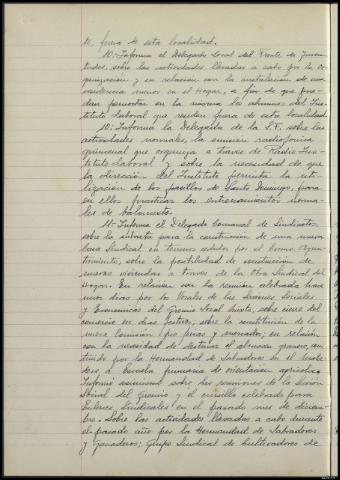 te fuera de esta localidad.
10.- Informa el Delegado Local del Frente de Juven-
tudes, sobre las actividades llevadas a cabo por la Or-
ganización y en relación con la instalación de una
residencia menor en el Hogar, a fin de que pue-
dan pernoctar en la misma los alumnos del Ins-
tituto Laboral que residen fuera de esta localidad.
10.- Informa la Delegada de la S.F. sobre las
actividades normales, la emisión radiofónica
quincenal que organiza a través de Radio Ins-
tituto Laboral y sobre la necesidad de que
la dirección del Instituto permita la uti-
lización de los pasillos de Santo Domingo, para
en ellos practicar los entrenamientos norma-
les de balonmano.
11.- Informa el Delegado Comarcal de Sindicatos,
sobre la subasta para la construcción de una nueva
Casa Sindical en terrenos cedidos por el Excmo. Ayun-
tamiento, sobre la posibilidad de construcción de
nuevas viviendas a través de la Obra Sindical del
Hogar. En relación con la reunión celebrada hace
unos días por los Vocales de las Secciones Sociales
y Económicas del Gremio Local Mixto, sobre cierre del
comercio en días festivos, sobre la constitución de la
nueva Comisión pro ferias y mercados; en relación
con la necesidad de destinar el almacén granero, cons-
truido por la Hermandad de Labradores en el
a Escuela primaria de orientación agrícola.
Informó asimismo sobre tres reuniones de la Sección
Social del Gremio y el cursillo celebrado para
Enlaces Sindicales en el pasado mes de diciem-
bre. Sobre las actividades llevadas a cabo durante
el pasado año por la Hermandad de Labradores
y Ganaderos; Grupo Sindical de Cultivadores de